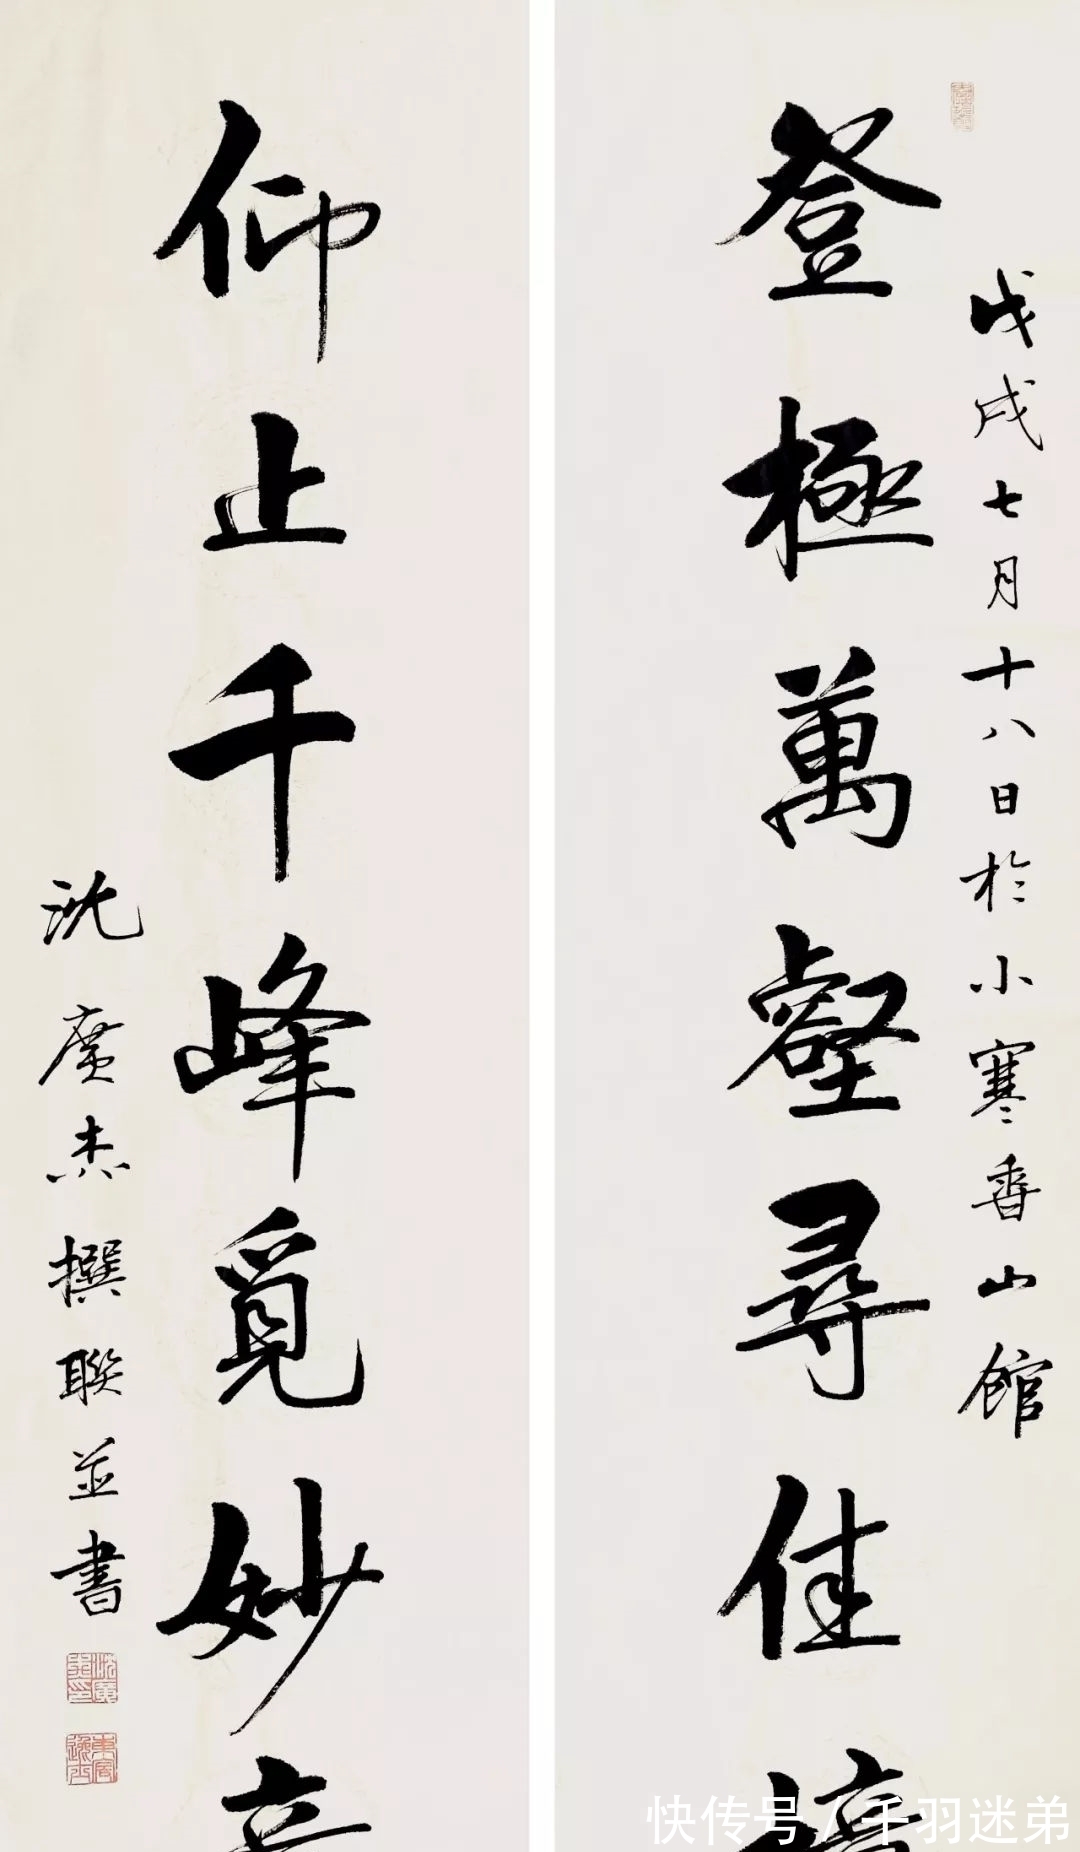 戊戌七月十八日於小寒香山館
登極萬壑尋佳
仰止千峰覓妙
沈廣杰撰聯並書
快传号 / 千羽迷弟